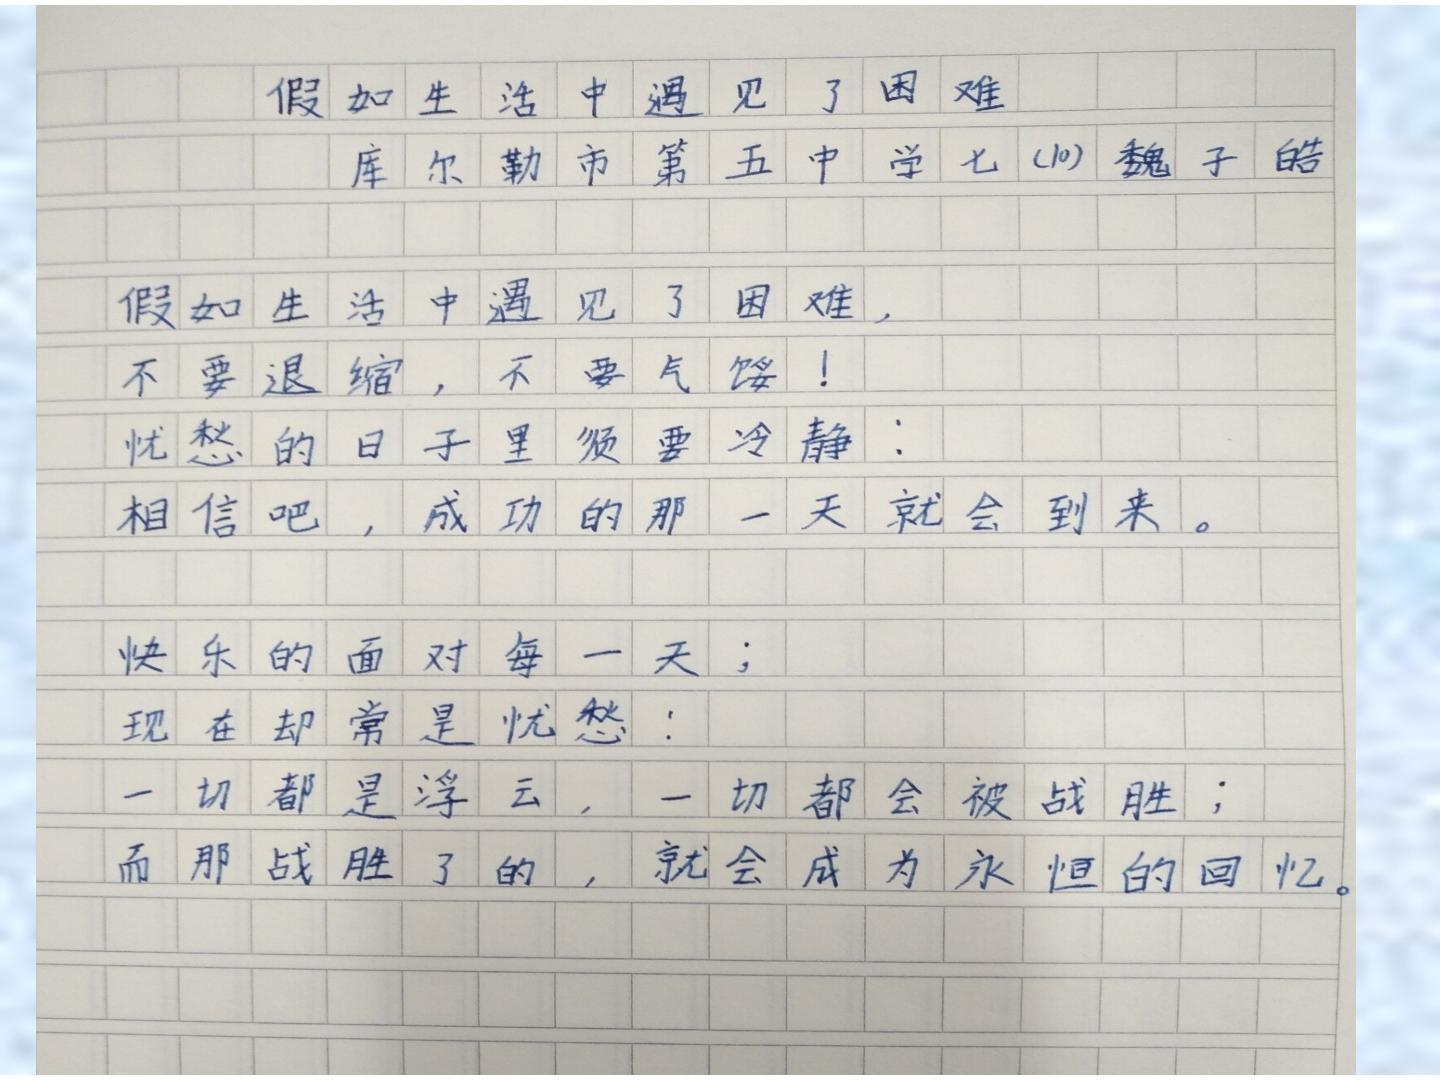 假如生活中遇见了困难
库尔勒市第五中学七(10)魏子皓
假如生活中遇见了困难,
不要退缩,不要气馁!
忧愁的日子里须要冷静:
相信吧,成功的那一天就会到来。
快乐的面对每一天;
现在却常是忧愁:
一切都是浮云,一切都会被战胜;
而那战胜了的,就会成为永恒的回忆。